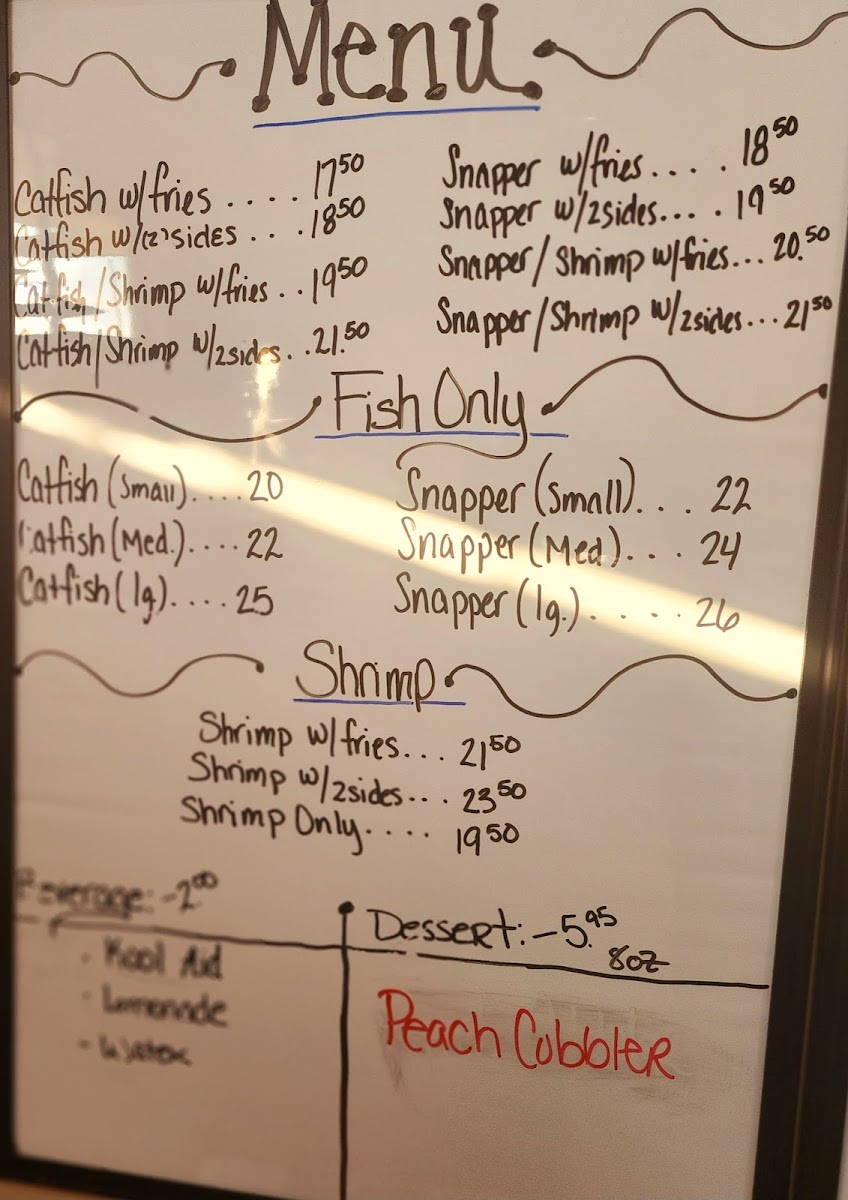 Menu
Catfish w/fries .... 17.50
Catfish w/(2) sides ... 18.50
Catfish/Shrimp w/fries .. 19.50
Catfish/Shrimp w/2sides .. 21.50
Snapper w/fries .... . 18.50
Snapper w/2sides.... . 19.50
Snapper/Shrimp w/fries... 20.50
Snapper/Shrimp w/2sides... 21.50
Fish Only
Catfish (Small).... 20
Catfish (Med.).... 22
Catfish (lg).... 25
Snapper (Small)... 22
Snapper (Med)... 24
Snapper (lg.).... 26
Shrimp
Shrimp w/fries... 21.50
Shrimp w/2sides... 23.50
Shrimp Only.... 19.50
Beverage: -2.00
- Kool Aid
- Lemonade
- Water
Dessert: -5.95
8oz
Peach Cobbler